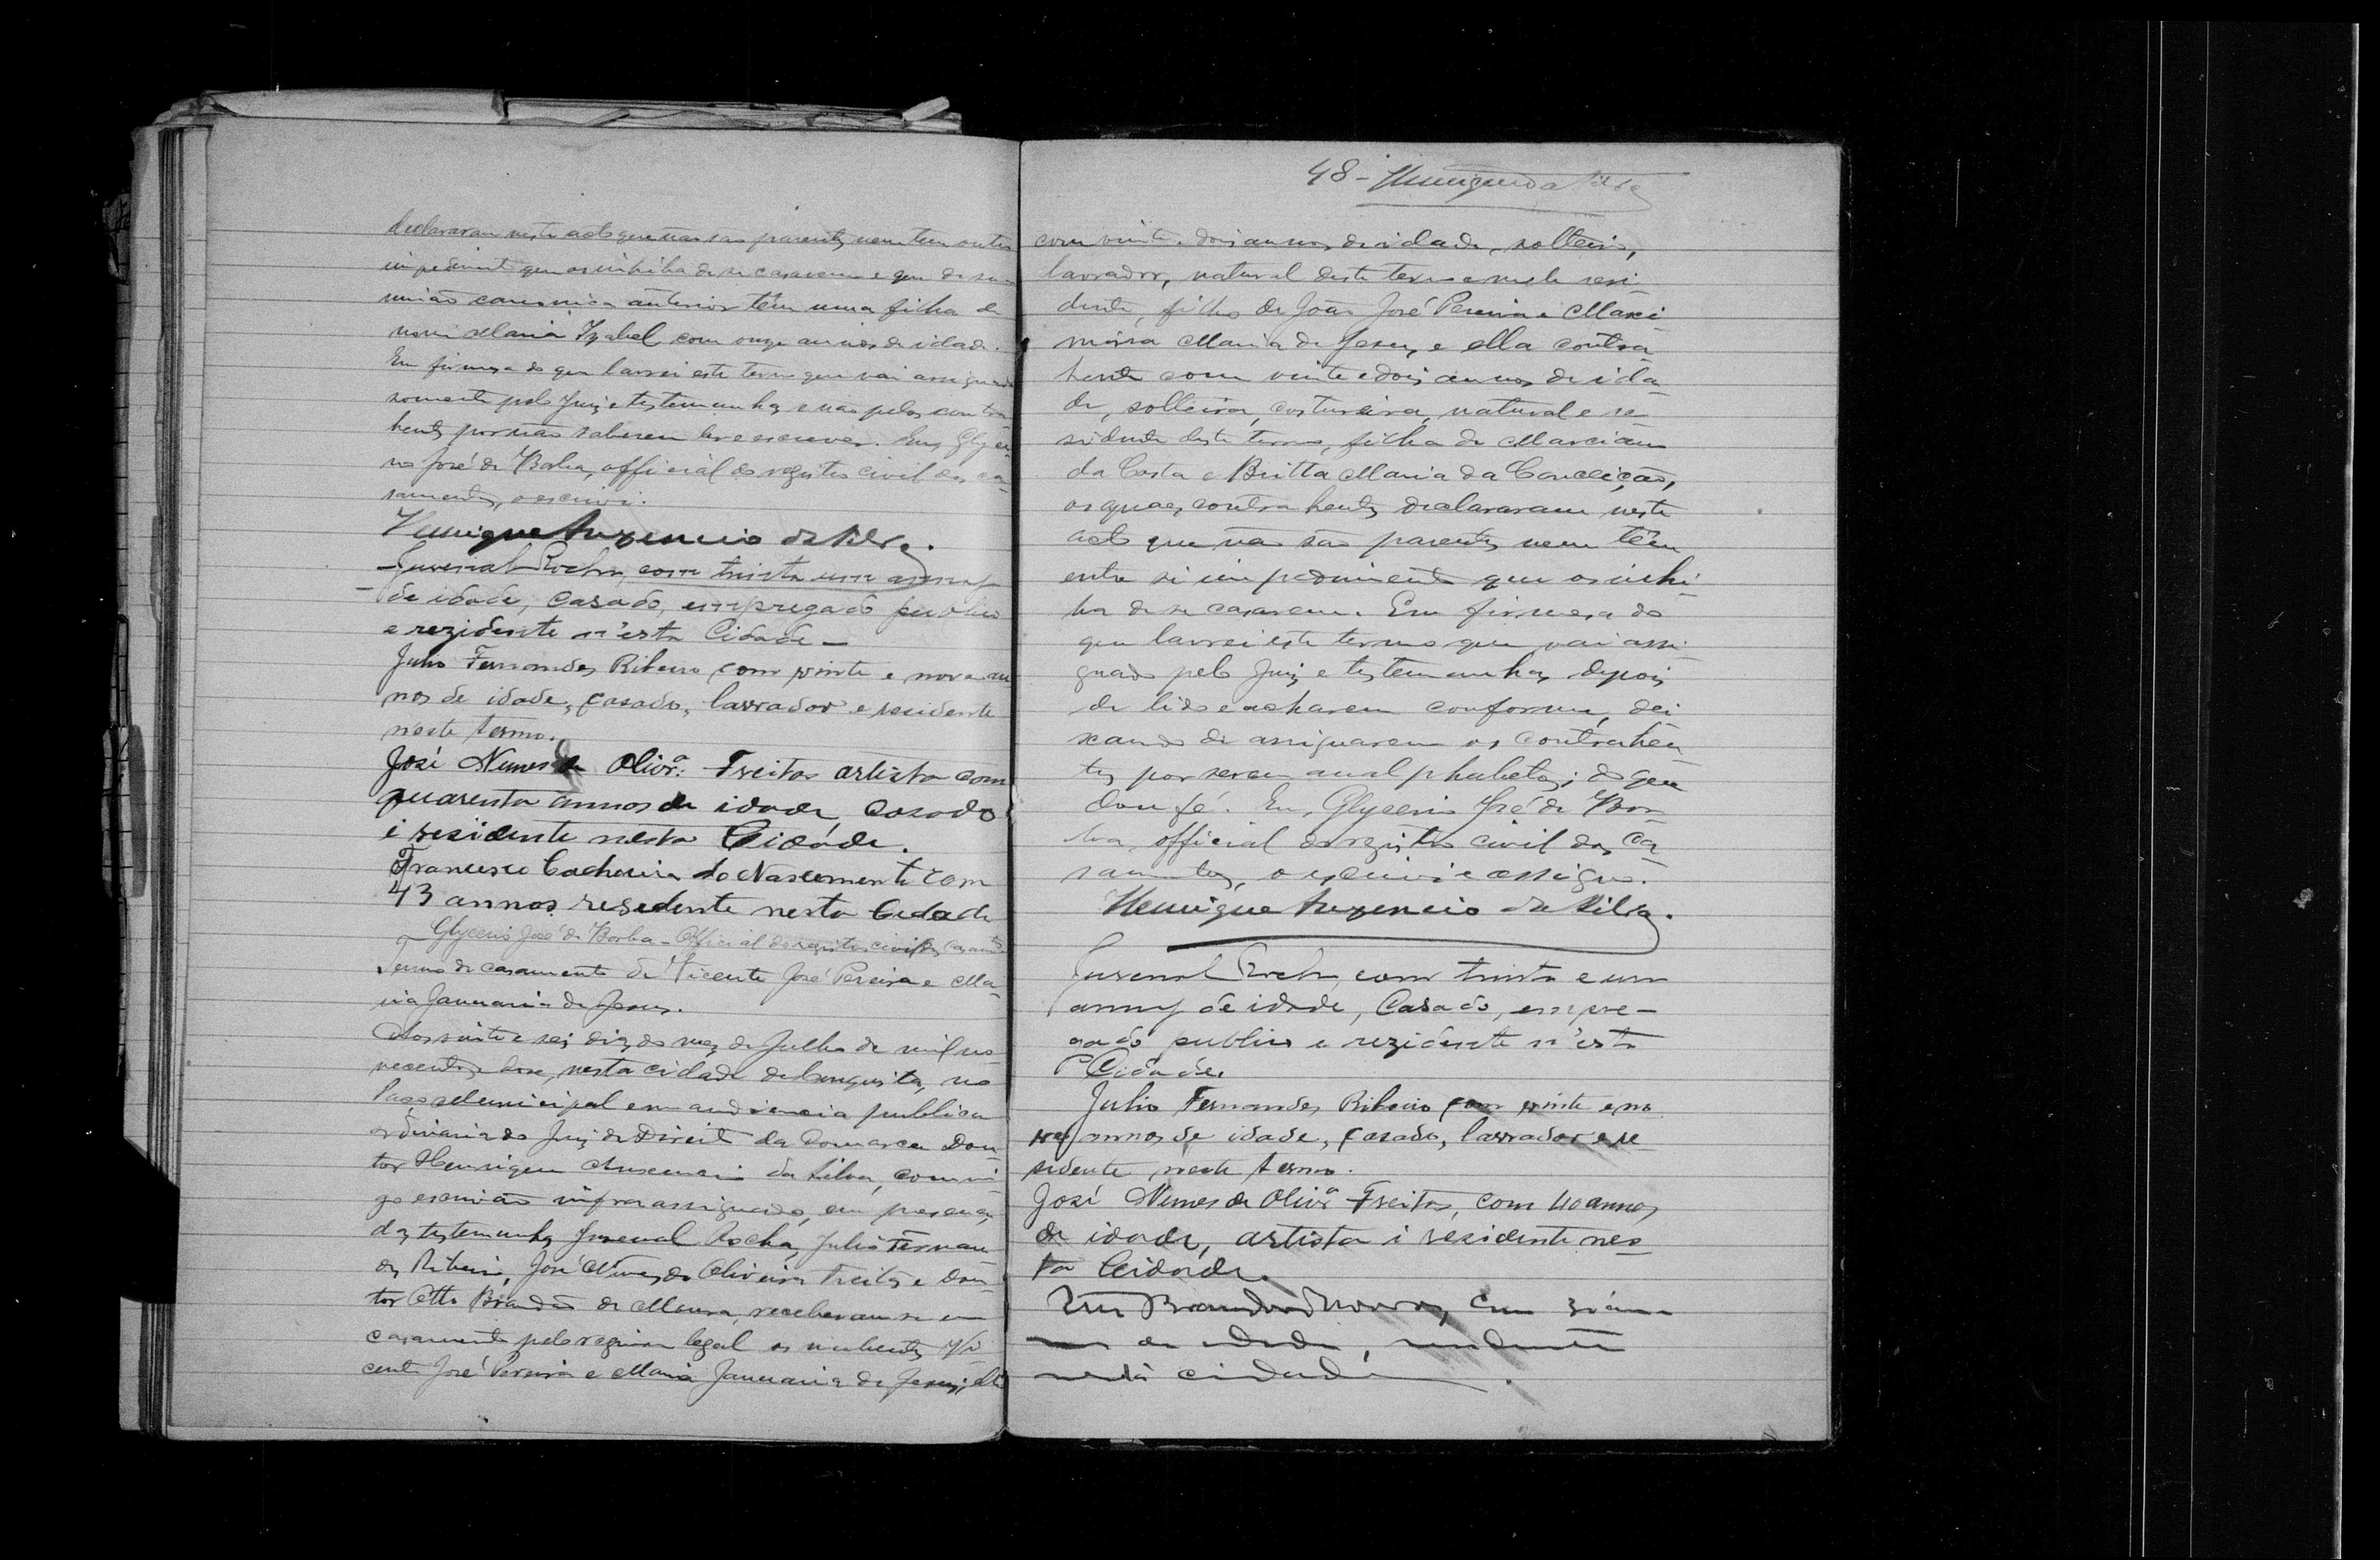 declararam neste acto que não são parentes, nem tem outro
impedimento que os inhiba de se casarem e que de sua
união canonica anterior têm uma filha de
nome Maria Izabel, com onze annos de idade.
Em firmesa do que lavrei este termo que vai assignado
somente pelo Juiz e testemunhas e não pelos contra
hentes por não saberem ler e escrever. Eu, Glyce
rio José de Borba, official do registro civil dos ca
samentos, o escrevi.
Henrique Auxencio da Silva.
Juvenal Rocha, com trinta um annos
de idade, casado, empregado publico
e rezidente n'esta Cidade—
Julio Fernandes Ribeiro com vinte e nove an
nos de idade, casado, lavrador e residente
neste termo.
José Nunes de Olivrª. Freitas artista com
quarenta annos de idade, casado
i residente nesta Cidade.
Francisco Cachoeira do Nascimento com
43 annos resedente nesta Cedade
Glycerio José de Borba - Official do registro civil dos casamtos
Termo de casamento de Vicente José Pereira e Ma-
ria Januaria de Jesus.
Aos vinte e seis dias do mez de Julho de mil no
vecentos e dose, nesta cidade de Conquista, no
Paço Municipal em audiencia publica
ordinaria do Juiz de Direito da Comarca Dou
tor Henrique Auxencio da Silva, commi
go escrivão infra assignado, em presença
das testemunhas Juvenal Rocha, Julio Fernan
des Ribeiro, José Nunes de Oliveira Freitas e Dou
tor Otto Brandão de Moura, receberam-se em
casamento pelo regimen legal os nubentes Vi
cente José Pereira e Maria Januaria de Jesus; elle
48 - Henrique da Silva
com vinte e dois annos de idade, solteiro,
lavrador, natural deste termo e nelle resi-
dente, filho de João José Pereira e Maxi-
mina Maria de Jesus, e ella contra
hente com vinte e dois annos de ida
de, solteira, costureira, natural e re
sidente deste termo, filha de Marciano
da Costa e Britta Maria da Conceição,
os quaes contrahentes declararam neste
acto que não são parentes nem têm
entre si impedimento que os inhi-
ba de se casarem. Em firmesa do
que lavrei este termo que vai assi-
gnado pelo Juiz e testemunhas, depois
de lido e acharem conforme, dei-
xando de assignarem os contrahen
tes por serem analphabetos; do que
dou fé. Eu, Glycerio José de Bor-
ba, official do registro civil dos ca
samentos, o escrevi e assigno.
Henrique Auxencio da Silva.
Juvenal Rocha, com trinta e um
annos de idade, Casado, empre-
gado publico e rezidente n'esta
Cidade.
Julio Fernandes Ribeiro com vinte e no
ve annos de idade, casado, lavrador e re-
sidente neste termo.
José Nunes de Olivª Freitas, com 40 annos
de idade, artista i residente nes-
ta Cidade.
Otto Brandão de Moura, com
de idade, residente
nesta cidade.